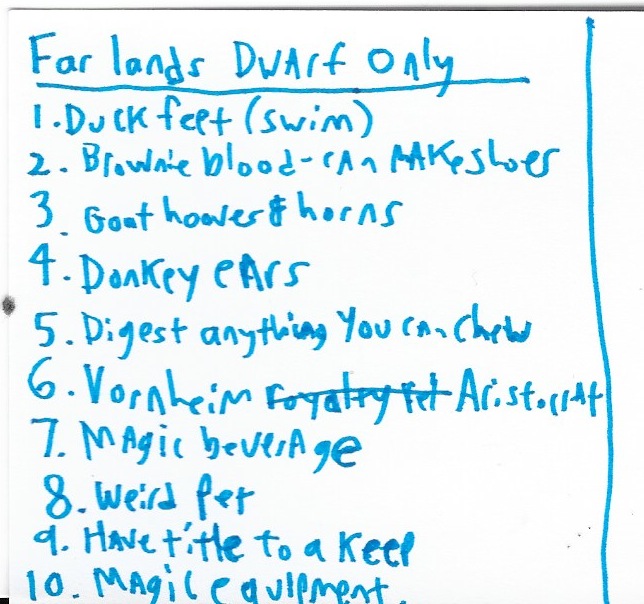 Far lands Dwarf Only
1. Duck feet (swim)
2. Brownie blood - can make shoes
3. Goat hooves & horns
4. Donkey ears
5. Digest anything you can chew
6. Vornheim Aristocrat
7. Magic beverage
8. Weird pet
9. Have title to a keep
10. Magic equipment.